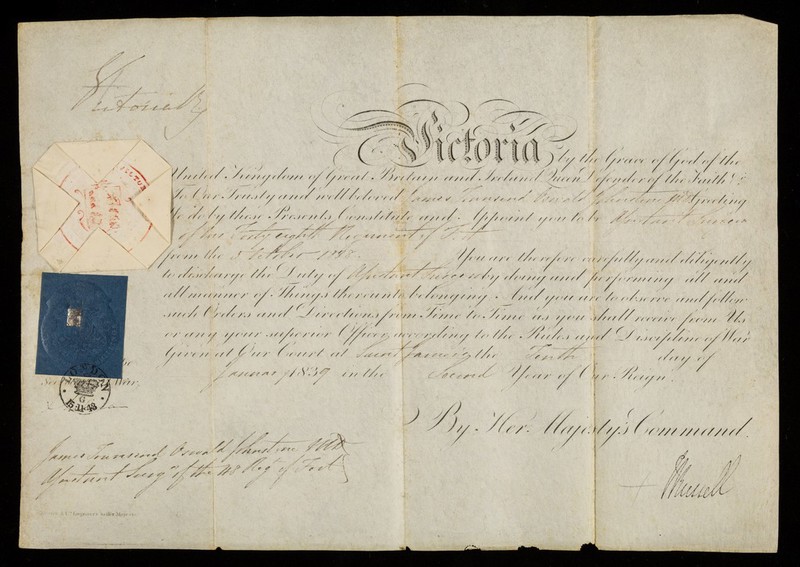 Victoria R
Victoria by the Grace of God of the
United Kingdom of Great Britain and Ireland Queen Defender of the Faith &c
To Our Trusty and well beloved James Townsend Oswald Johnstone MD Greeting
We do by these Presents Constitute and Appoint you to be Assistant Surgeon
of our Forty eighth Regiment of Foot
from the 5 October 1838. You are therefore carefully and diligently
to discharge the Duty of Assistant Surgeon by doing and performing all and
all manner of Things thereunto belonging And you are to observe and follow
such Orders and Directions from Time to Time as you shall receive from Us
or any your superior Officer according to the Rules and Discipline of War
Given at Our Court at Saint James's the Tenth day of
January 1839 in the Second Year of Our Reign.
By Her Majesty's Command.
J Russell
War,
G
James Townsend Oswald Johnstone MD
Assistant Surgn of the 48 Regt of Foot